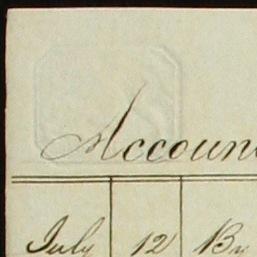 Accoun
July 12 By